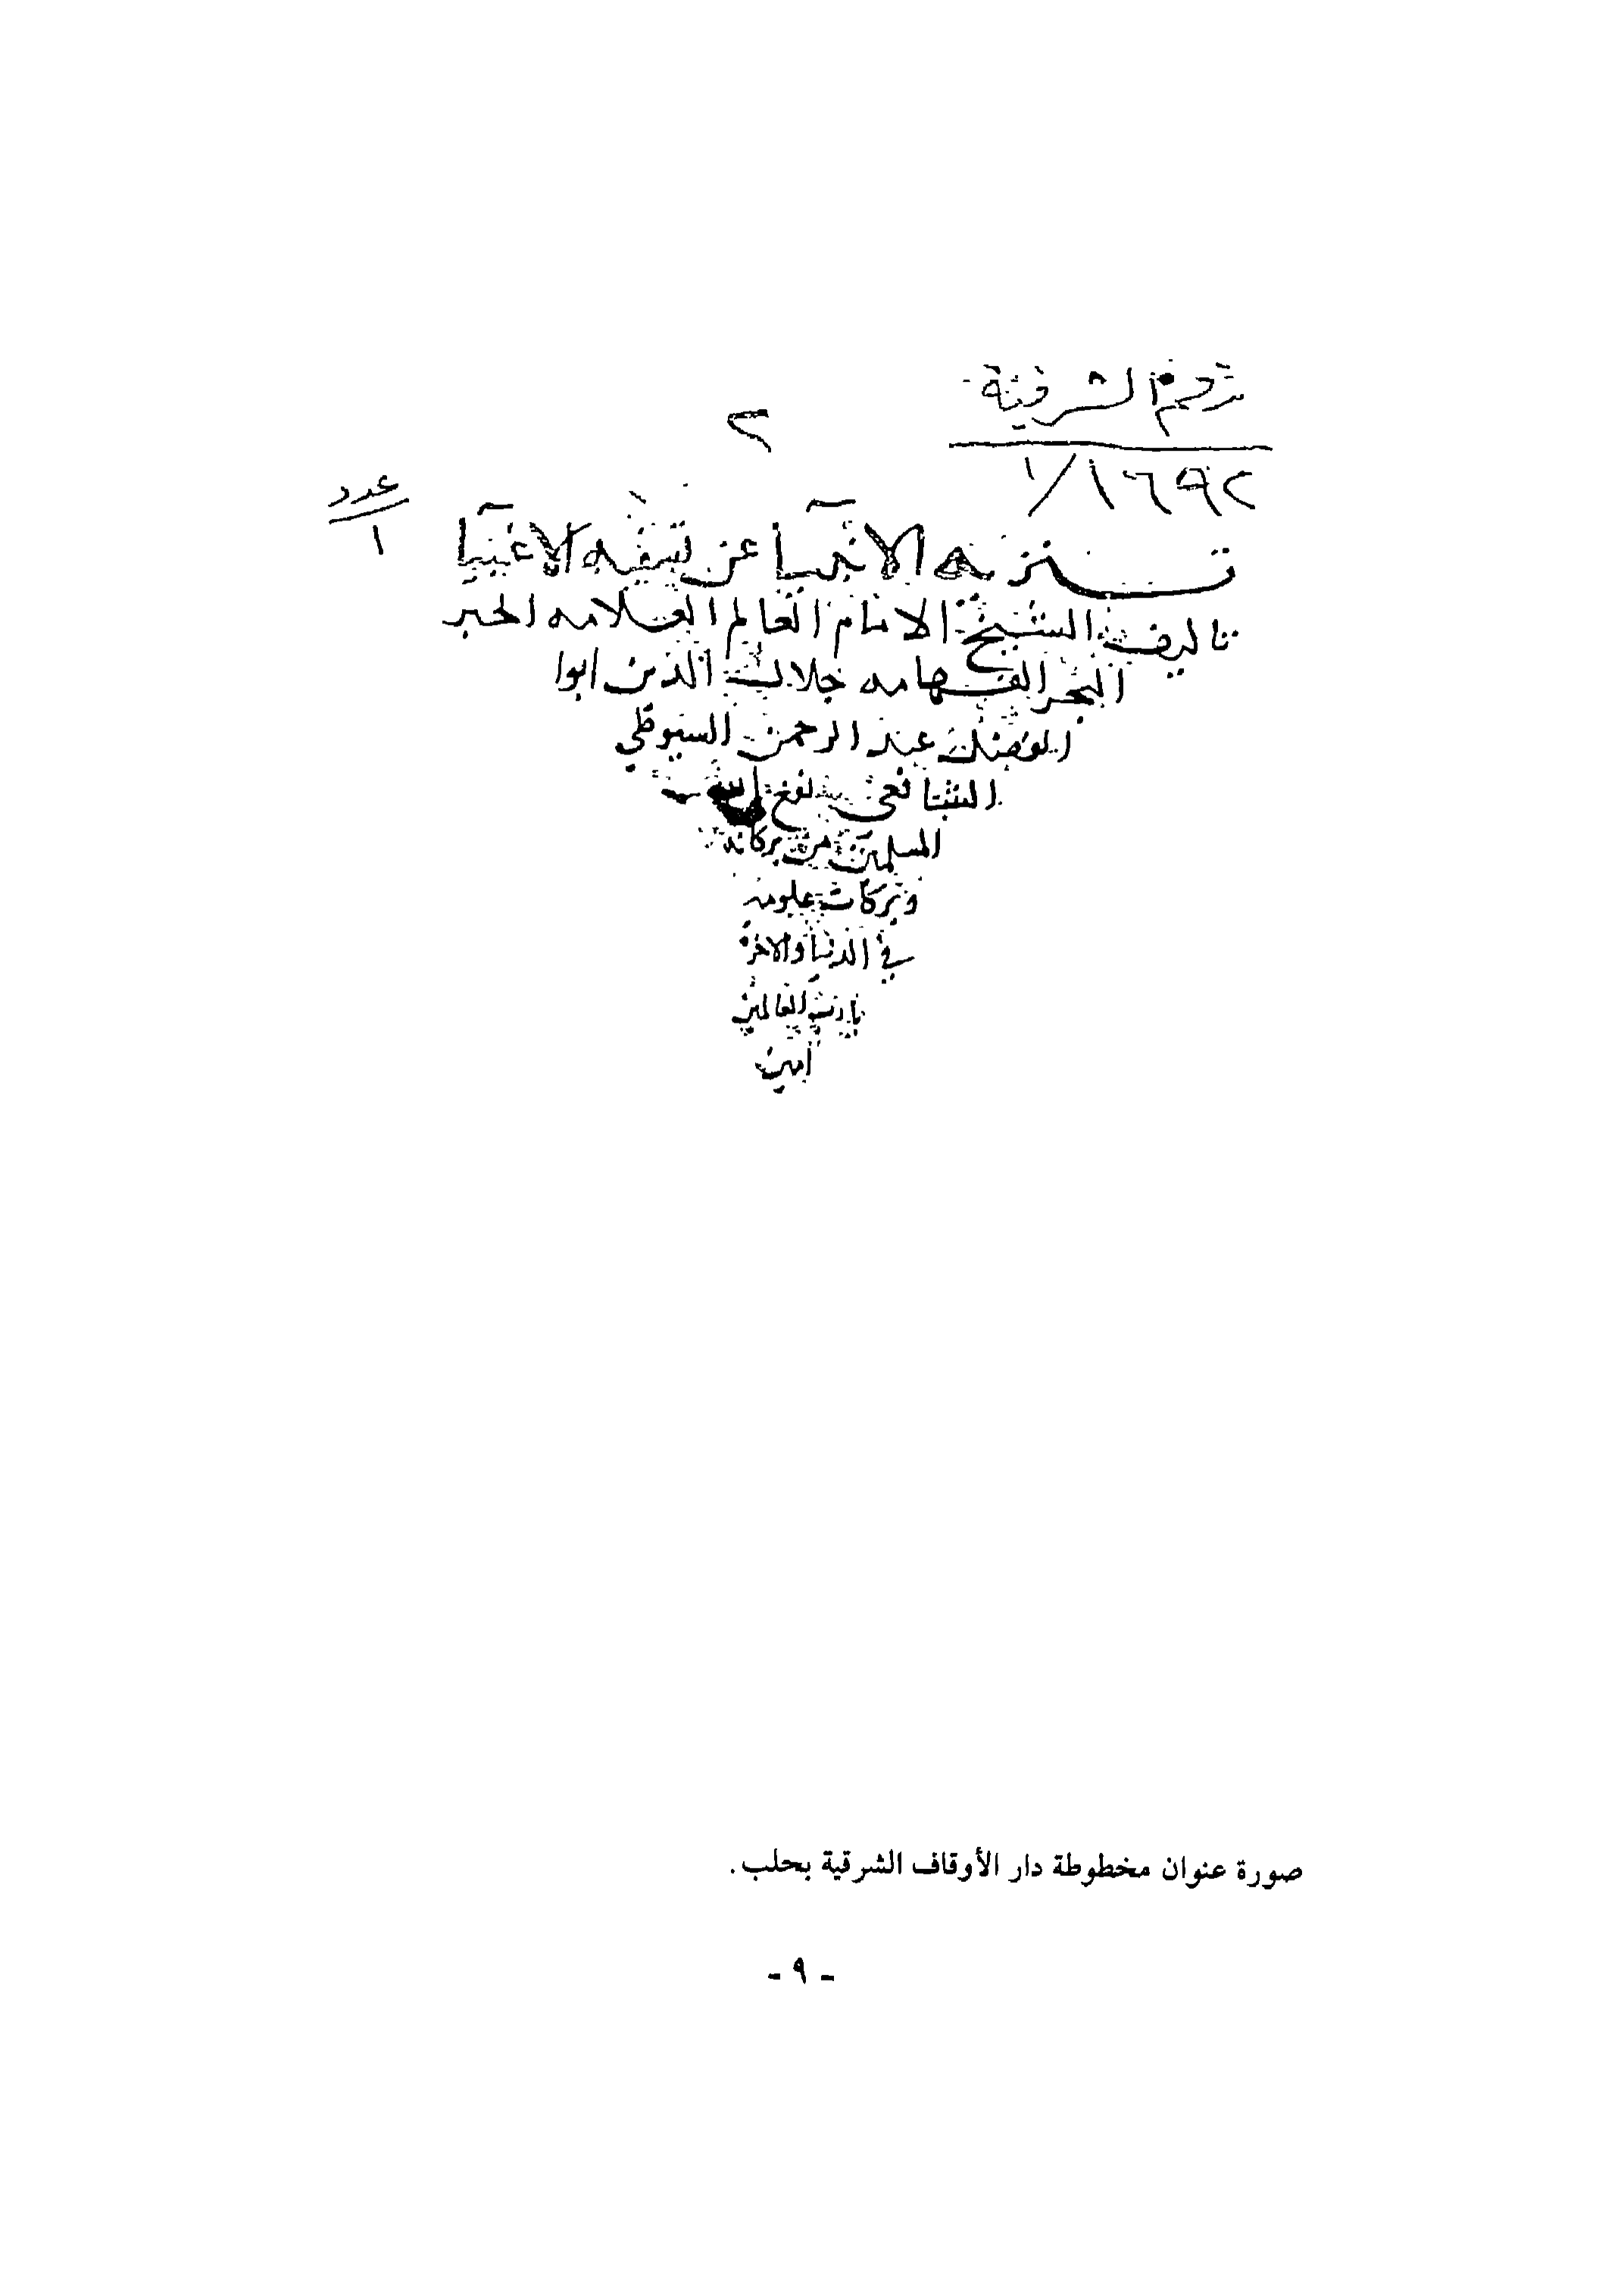 رقم الشرقية
٢
١٦٩٢/١
عدد
١
تنزيه الانبيآ عن تسفيه الاغبيآ
تاليف الشيخ الامام العالم العلامه الحبر
البحر الفهامه جلال الدين ابوا
الفضل عبد الرحمن السيوطي
الشافعي نفع الله
المسلمين من بركاته
وبركات علومه
في الدنيا والاخرة
يا رب العالمين
امين
صورة عنوان مخطوطة دار الأوقاف الشرقية بحلب.
- ٩ -